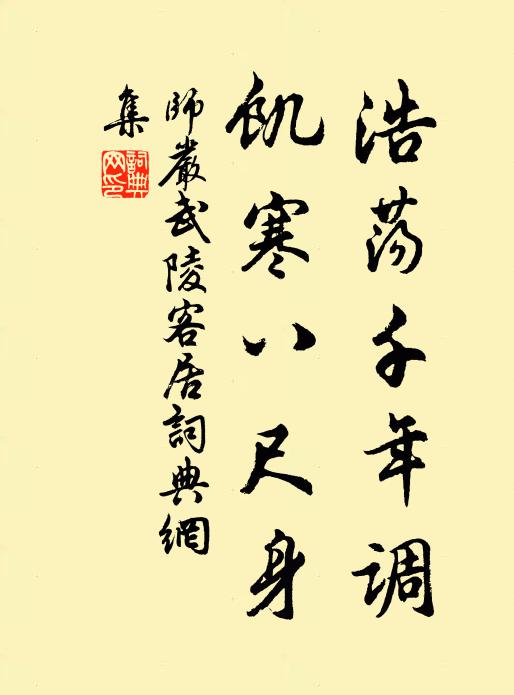 浩荡千年调
飢寒八尺身
師嚴武陵客居詞典網
集
詞典网印